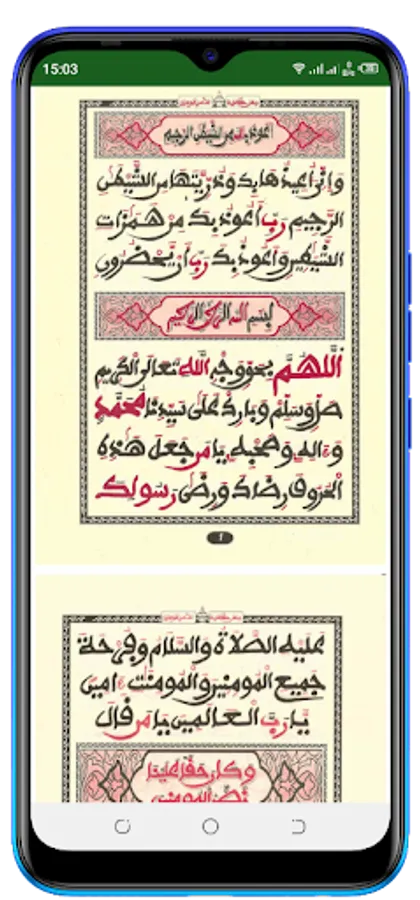 15:03
أعوذ بالله من الشيطن الرجيم
وإني أعيذها بك وذريتها من الشيطن
الرجيم رب أعوذ بك من همزات
الشيطين وأعوذ بك رب أن يحضرون
بسم الله الرحمن الرحيم
اللهم بحق وجه الله تعالى الكريم
صل وسلم وبارك على سيدنا محمد
وءاله وصحبه يا من جعل هذه
الحروف رضاك ورضى رسولك
عليه الصلاة والسلام وفرحة
جميع المومنين والمومنت ءامين
يا رب العالمين يا من قال
وكان حقا علينا
نصر المومنين